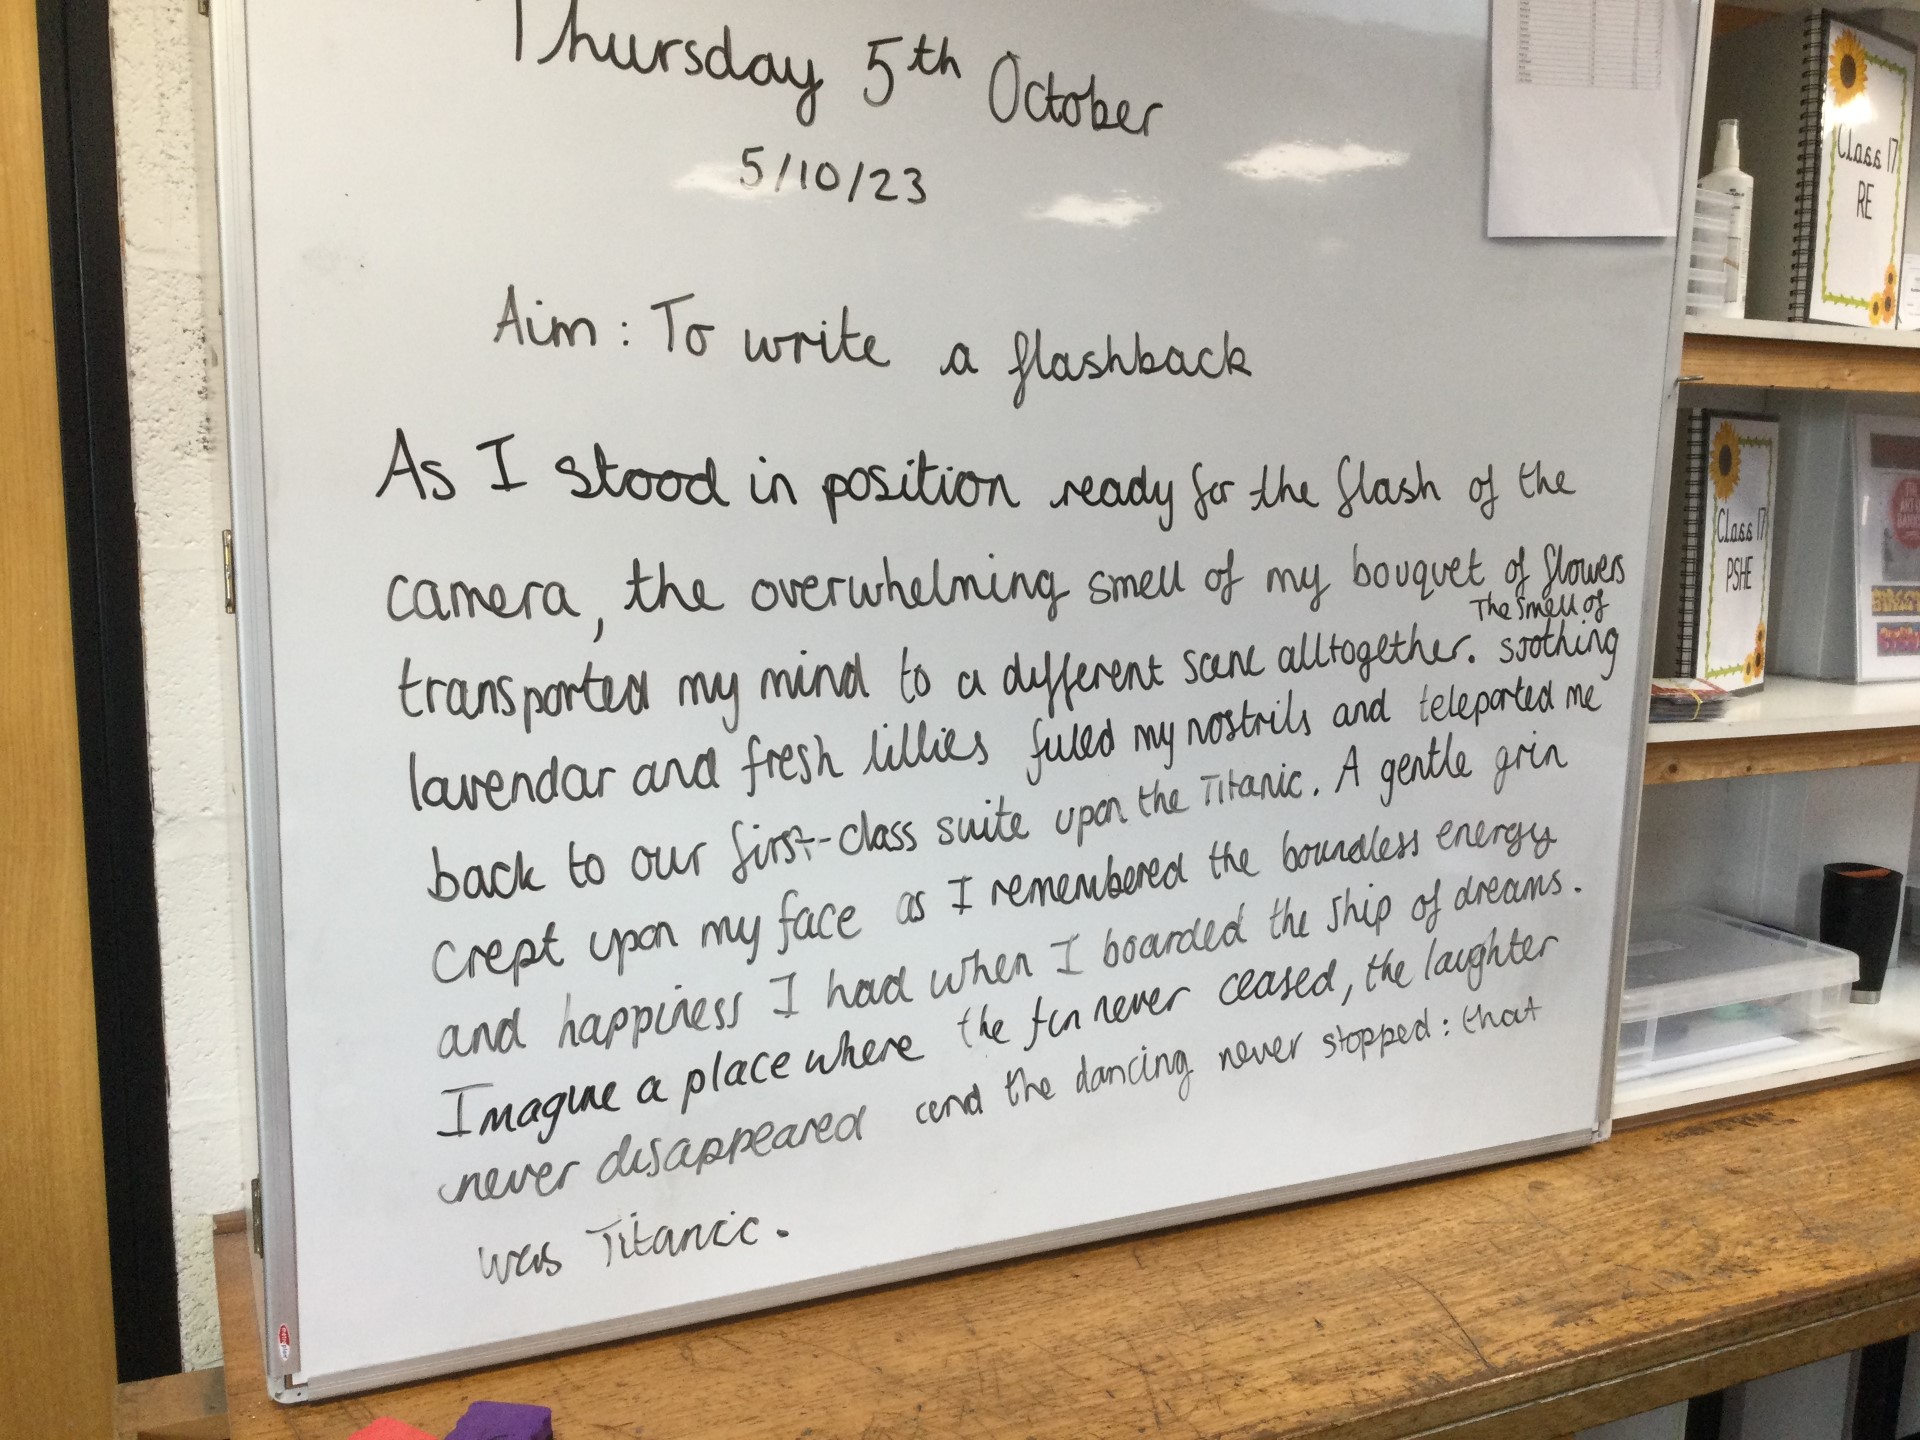 Thursday 5th October
5/10/23
Aim: To write a flashback
As I stood in position ready for the flash of the
camera, the overwhelming smell of my bouquet of flowers
transported my mind to a different scene alltogether. The smell of soothing
lavendar and fresh lillies filled my nostrils and teleported me
back to our first-class suite upon the Titanic. A gentle grin
crept upon my face as I remembered the boundless energy
and happiness I had when I boarded the ship of dreams.
Imagine a place where the fun never ceased, the laughter
never disappeared and the dancing never stopped: that
was Titanic.
Class 17
RE
Class 17
PSHE